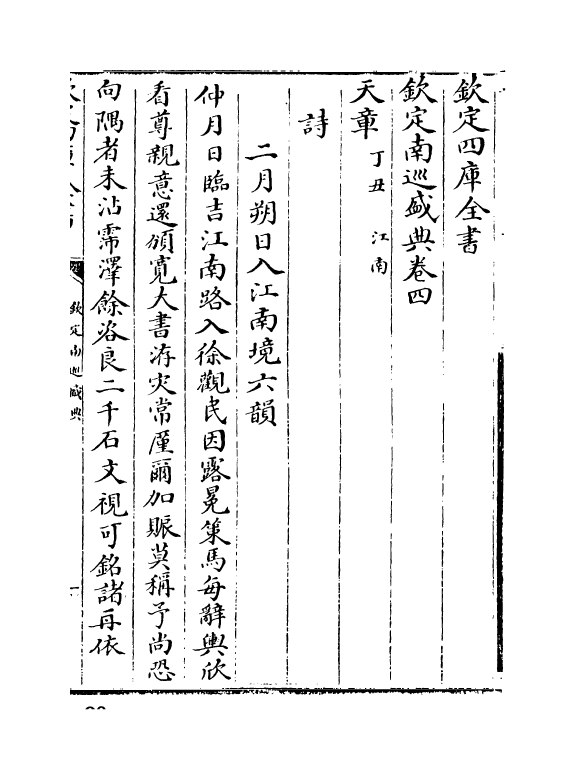 欽定四庫全書
欽定南巡盛典卷四
天章 丁丑 江南
詩
二月朔日入江南境六韻
仲月日臨吉江南路入徐觀民因露冕策馬每辭輿欣
看尊親意還頒寬大書洊灾常廑爾加賑莫稱予尚恐
向隅者未沾霈澤餘咨良二千石文視可銘諸再依
欽定南巡盛典
一